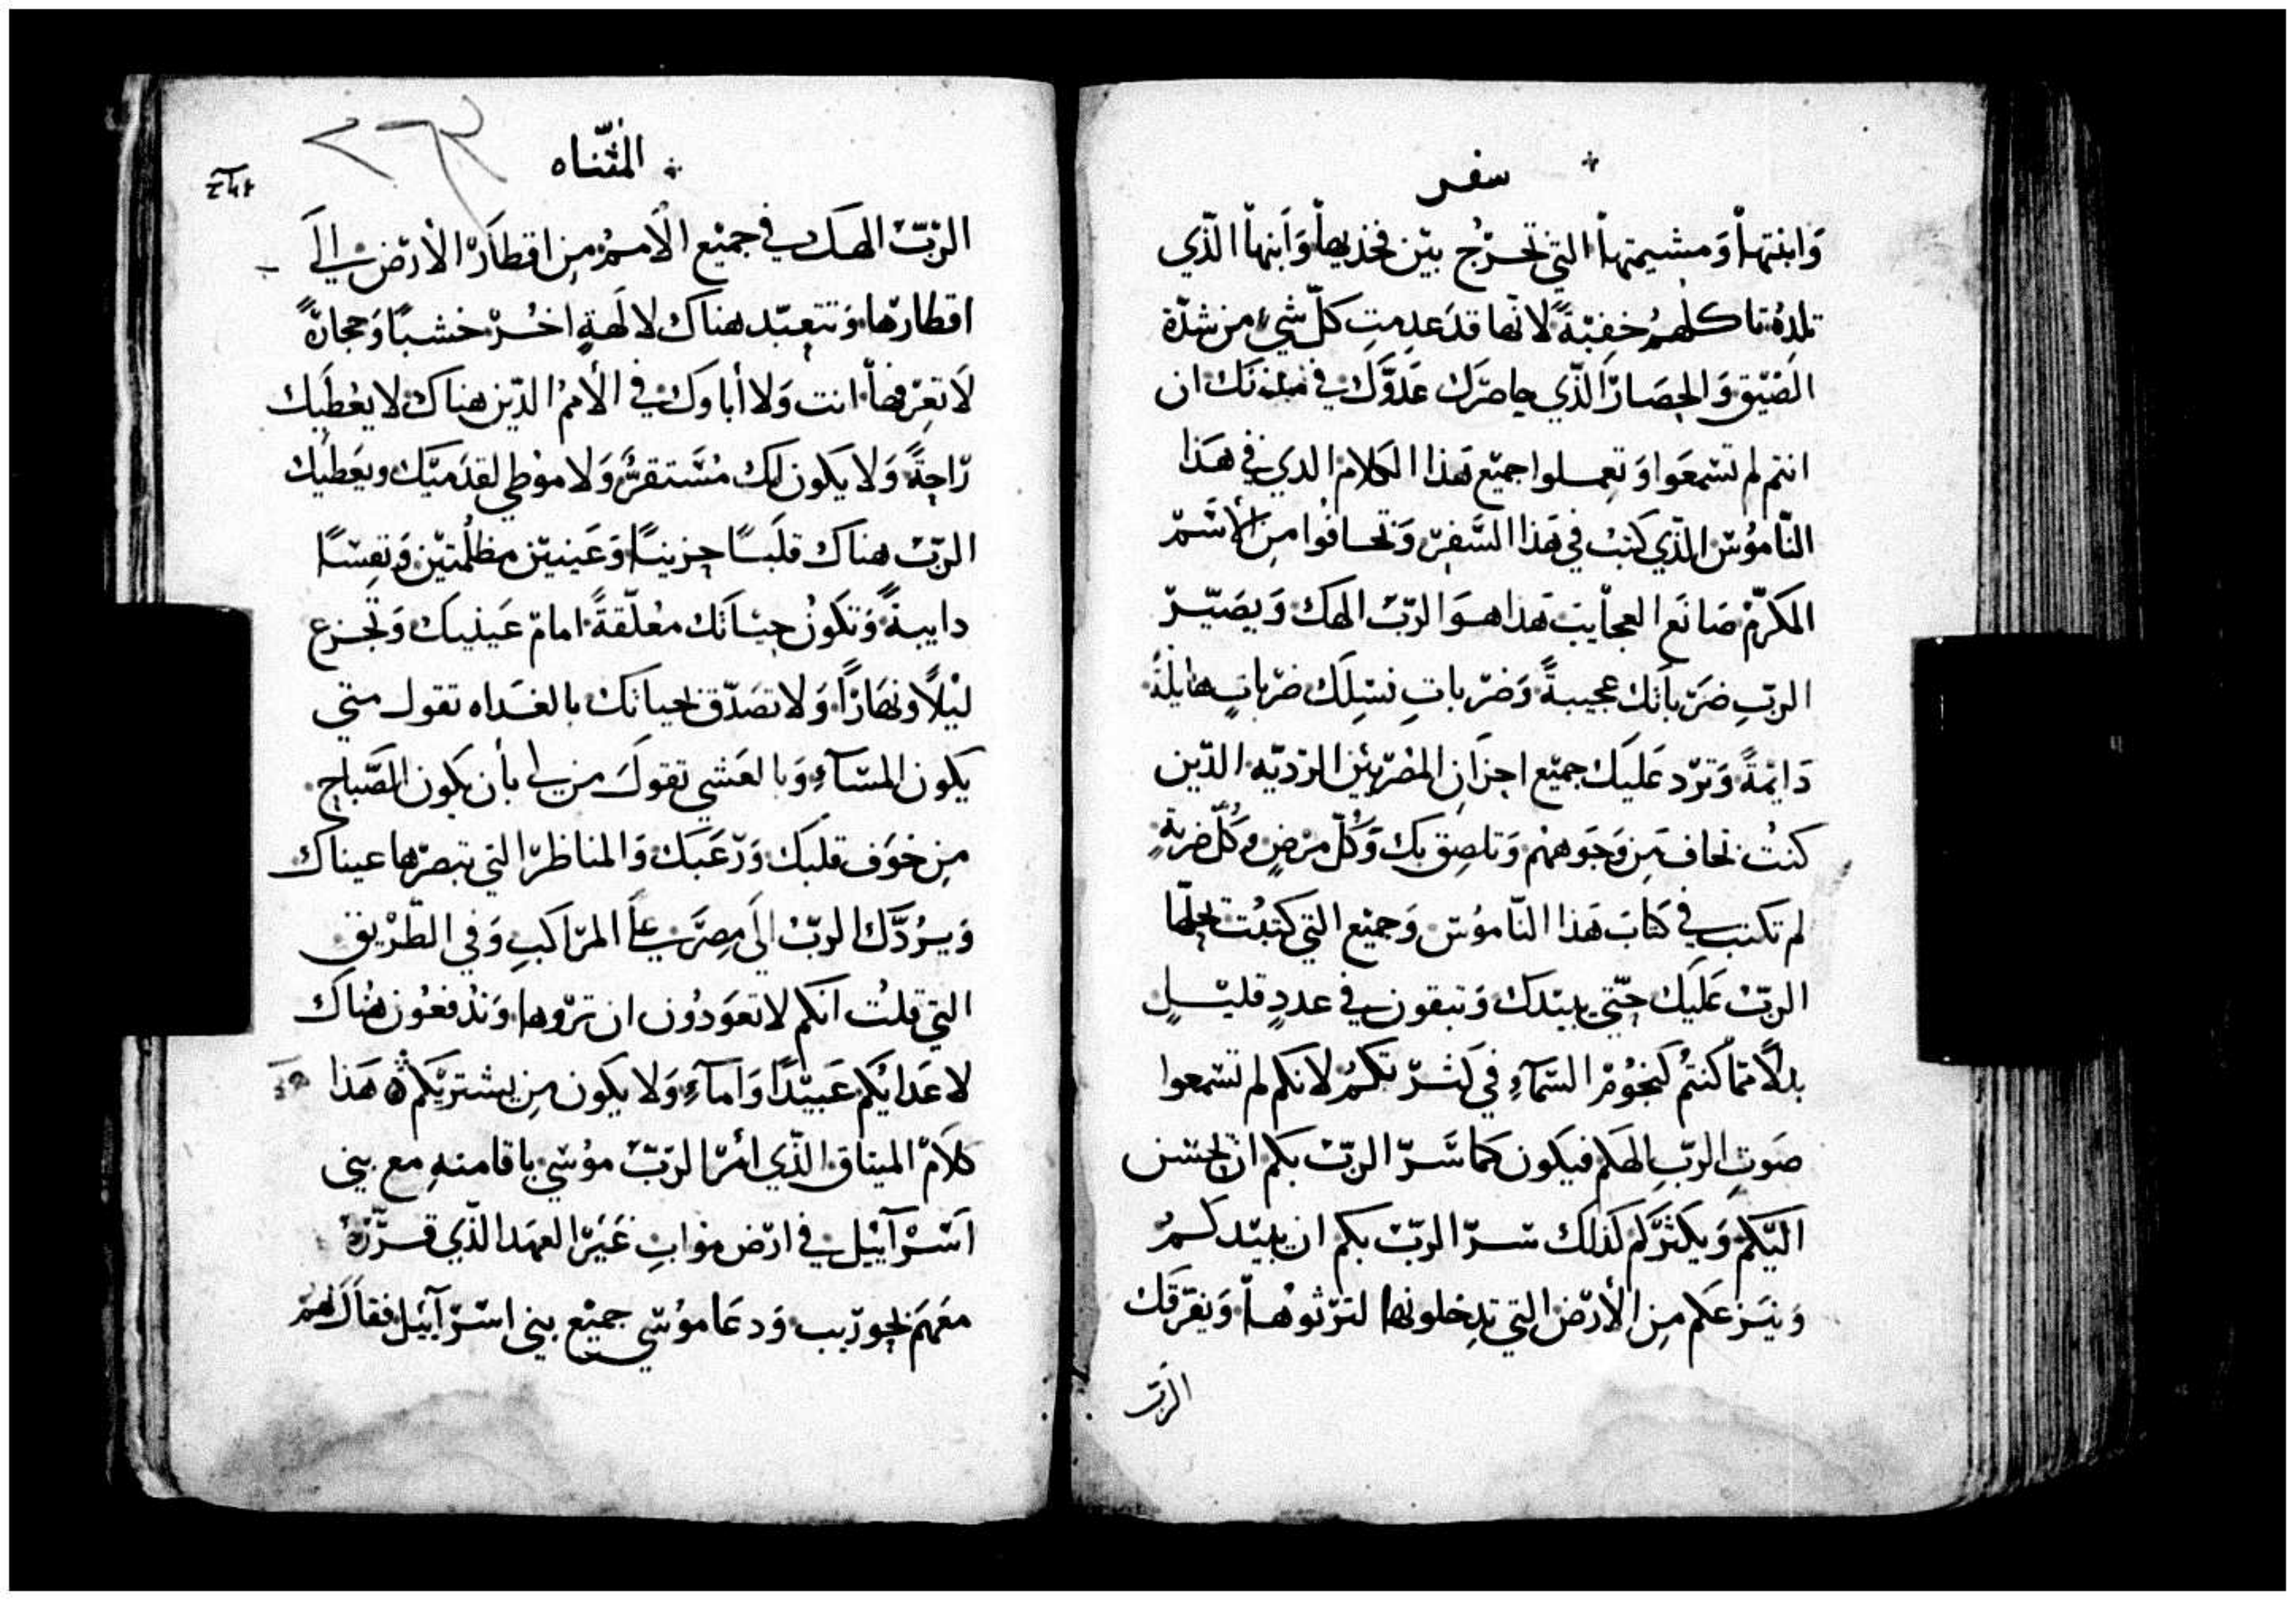 سفر
وَابنتهاْ وَمشيمتهاْ التي تخرُج بيْن فخديهاْ وَابنهاْ الذّي
تلدهُ تاكلهمُ خفيّةً لانّها قدَعدِمتِ كلّ شيْ من شدّة
الضيْق وَالحِصَار الذّي حاصرَك عَدوَّك في مدنك ان
انتم لم تسْمعَوا وَتعملوا جميْع هَذا الكلام الدي في هَذا
النّامُوسْ الذّي كتبْ في هَذا السَّفِر وَتخافوُا من الأسْم
المكرّمْ صَانعَ العجاْيبْ هَذا هوَ الربّ الهك وَيصَيّر
الربّ ضرَباَتك عجيبةً وَضرْباتِ نسْلِكَ ضرْباتٍ هايلةً
دَايْمةً وَترّد عَليَك جميْع احزان المصْريْين الردّيه الذّين
كنتُ تخاف مِن وَجَوههمْ وَتلصِق بك وَكُلّ مرْضٍ وكُلّ ضربةٍ
لم تكتب في كتابَ هَذا النّاموُسْ وَجميْع التي كتبُت يجلبْها
الربّ عَليَك حتّي يبيْدك وَتبقون في عددٍ قليْلٍ
بدلاً ممّا كنتُم كنجوُم السّمآءِ في كثرتكمُ لانكم لم تسْمعوا
صَوتِ الربّ الهكم فيكون كماسَّر الربّ بكم ان يحْسْن
اليْكم وَيكثرَّكم كذلك سْرّ الربّ بكم ان يبيْدكمُ
وَينزعَكم مِن الأرْض التي تدِخلونها لترْثوُهاْ وَيفرّقك
الربّ
المْثنّاه
الربّ الهك في جميْع الاَممُ مِن اقطاَرْ الأرْض الَي
اقطارْها وَتتعبّد هناك لالَهةٍ اخُر خشبًا وَحجارةً
لاَ تعِرفهاْ انت وَلا أباوك في الأممُ الذّين هناك لا يعْطيَك
رّاحةً وَلا يكون لك مسْتقرُ وَلا موْطي لقدَميَك ويعَطيَك
الربّ هناك قلَبًا حزينًا وَعَينيْن مظلُمتيْن وَنفِسْاً
دايبةً وَتكَونُ حيَاتَك معلّقةً امامّ عَينيك وَتجزع
ليْلاً ونهَارًا وَلا تصَدّق بحياتك بالغَداه تقول متي
يكون المسْآءِ وَبالعَشي تقولَ من لي بأن يكون الصّباح
مِن خوَف قلبَك وَرّعَبَك وَالمناظرْ التي تبصرْها عيناك
وَيرُدَّك الربّ الَي مِصرَ علَي المرْاكبِ وَفي الطّريْق
التي قلتُ انكم لا تعوَدوُن ان ترْوها وَتدْفعُون هُناك
لاعَدايُكم عَبيْدًا وَاماءً وَلا يكون مِن يشترْيكم هَذا
كلاَمْ الميتاق الذّي أمْر الربّ موُسْي باقامتهِ مع بني
اسْرآييْل في ارْض موْابِ غَيَرْ العهَد الذّي قرّرّهُ
معَهمَ بحورْيب وَدعَا موُسْي جميْع بني اسْرآييْل فقاَل لهمُ